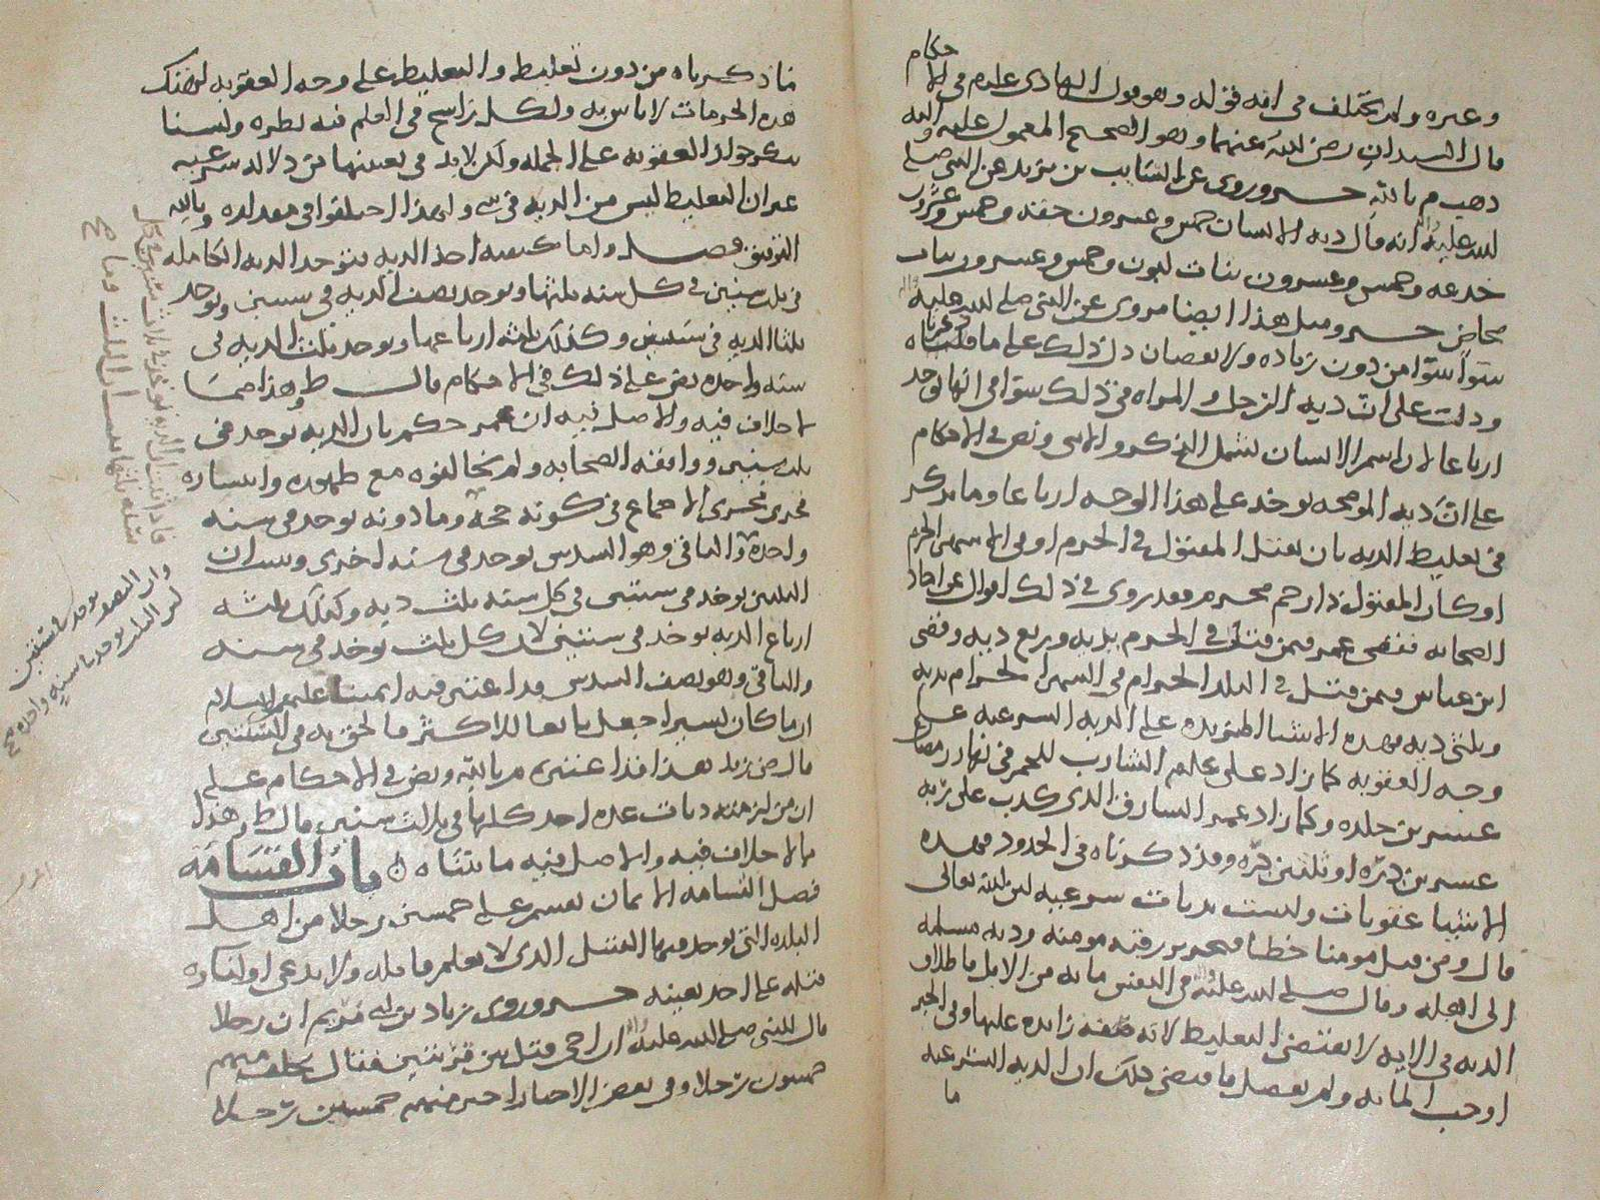 حكام
وغيره ولم يختلف في انه قوله وهو قول الهادى علم في الا
قال السيدان رضي الله عنهما وهو الصحيح المعمول عليه والله
دهب م بالله خبر وروى عن السايب بن يزيد عن النبي صلى
الله عليه انه قال دية الانسان خمس وعشرون حقه وخمس وعشرون
جدعه وخمس وعشرون بنات لبون وخمس وعشرون بنات
مخاض خبر ومثل هذا ايضا مروى عن النبي صلى الله عليه
سوآ سوآ من دون زياده ولا نقصان دل ذلك على ما قلناه
ودلت على ان دية الرجل والمراه في ذلك سوآ في انها توخد
ارباعا لان اسم الانسان يشمل الذكر والانثى ونص في الاحكام
على ان دية الموضحه توخد على هذا الوجه ارباعا وما يذكر
في تغليظ الدية بان يقتل المقتول في الحرم او في الاشهر الحرم
او كان المقتول ذا رحم محرم فقد روى في ذلك اقوال عن احاد
الصحابه فقضى عمر فيمن قتل في الحرم بدية وربع دية وقضى
ابن عباس فيمن قتل في البلد الحرام في الشهر الحرام بدية
وثلثي دية فهذه الاشيا المزيده على الدية الشرعيه على
وجه العقوبه كما زاد على علم الشارب للخمر في نهار رمضان
عشرين جلده وكما زاد عمر السارق الذى كذب على ربه
عشرين دره او ثلثين دره وقد ذكرناه في الحدود فهذه
الاشيا عقوبات وليست بديات شرعيه لان الله تعالى
قال ومن قتل مومنا خطا فتحرير رقبه مومنه ودية مسلمه
الى اهله وقال صلى الله عليه في النفس مايه من الابل فاطلاق
الدية في الاية لا يقتضي التغليظ لانه صفه زايده عليها وفي الخبر
اوجب المايه ولم يفصل فاقتضى ذلك ان الدية الشرعيه
ما
ما ذكرناه من دون تغليظ والتغليظ على وجه العقوبه
هذه الحرمات لا باس به ولكل راسخ في العلم فيه نظره ولسنا
ننكر جواز العقوبه على الجمله ولكن لا بد في تعيينها من دلاله شرعيه
غير ان التغليظ ليس من الدية في شي ولهذا اختلفوا في مقداره وبالله
التوفيق فصل واما كيفيه اخذ الدية فتوخد الدية الكامله
في ثلث سنين في كل سنه ثلثها وتوخد نصف الدية في سنتين وتوخد
ثلثا الدية في سنتين وكذلك ثلثه ارباعها وتوخد ثلث الدية في
سنه واحده نص على ذلك في الاحكام قال ط وهذا مما
لا خلاف فيه والاصل فيه ان عمر حكم بان الدية توخد في
ثلث سنين ووافقه الصحابه ولم يخالفوه مع ظهوره وانتشاره
فجرى مجرى الاجماع في كونه حجه وما دونه توخد في سنه
واحده والباقي وهو السدس توخد في سنه اخرى
الثلثين توخد في سنتين في كل سنه ثلث دية وكذلك ثلثه
ارباع الدية توخد في سنتين لان كل ثلث توخد في سنه
والباقي وهو نصف السدس قد اعتبر فيه ايمتنا عليهم السلام
ان ما كان يسيرا جعل تابعا للاكثر فالحق به في السنتين
قال ض زيد بهذا قذا عندى م بالله ونص في الاحكام على
ان من لزمته ديات عده اخذ كلها في ثلاث سنين قال ط وهذا
مما لا خلاف فيه والاصل فيه ما بيناه باب القسامه
فصل القسامه الايمان تقسم على خمسين رجلا من اهل
البلده التي توجد فيها القتيل الذى لا يعلم قاتله ولا يدعى اولياوه
قتله على احد بعينه خبر وروى زياد بن ابي مريم ان رجلا
قال للنبي صلى الله عليه ان اخي قتل بين قريتين فقال يحلف منهم
خمسون رجلا وفي بعض الاخبار اختر منهم خمسين رجلا